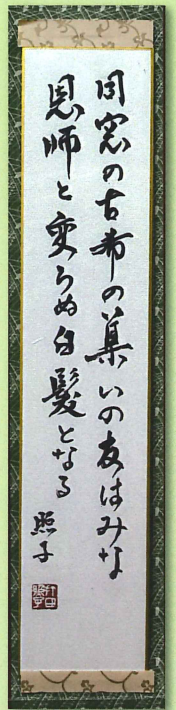 同窓の古希の集いの友はみな
恩師と変らぬ白髪となる
照子